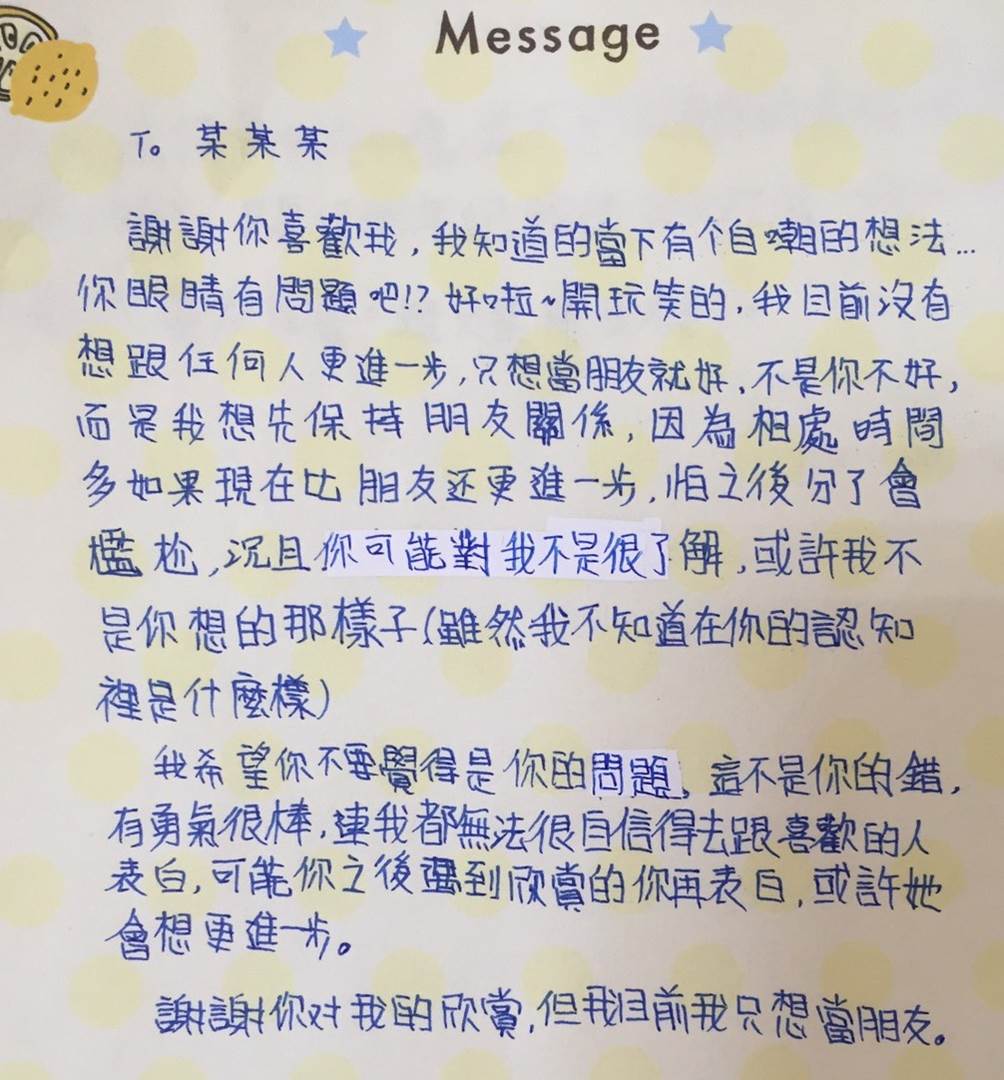 Message
To 某某某
謝謝你喜歡我,我知道的當下有个自嘲的想法...
你眼睛有問題吧!?好啦~開玩笑的,我目前沒有
想跟任何人更進一步,只想當朋友就好、不是你不好,
而是我想先保持朋友關係,因為相處時間
多如果現在比朋友还更進一步,怕之後分了會
尷尬,況且你可能對我不是很了解,或許我不
是你想的那樣子(雖然我不知道在你的認知
裡是什麼樣)
我希望你不要覺得是你的問題,這不是你的錯,
有勇氣很棒,連我都無法很自信得去跟喜歡的人
表白,可能你之後遇到欣賞的你再表白,或許她
會想更進一步。
謝謝你对我的欣賞,但我目前我只想當朋友。